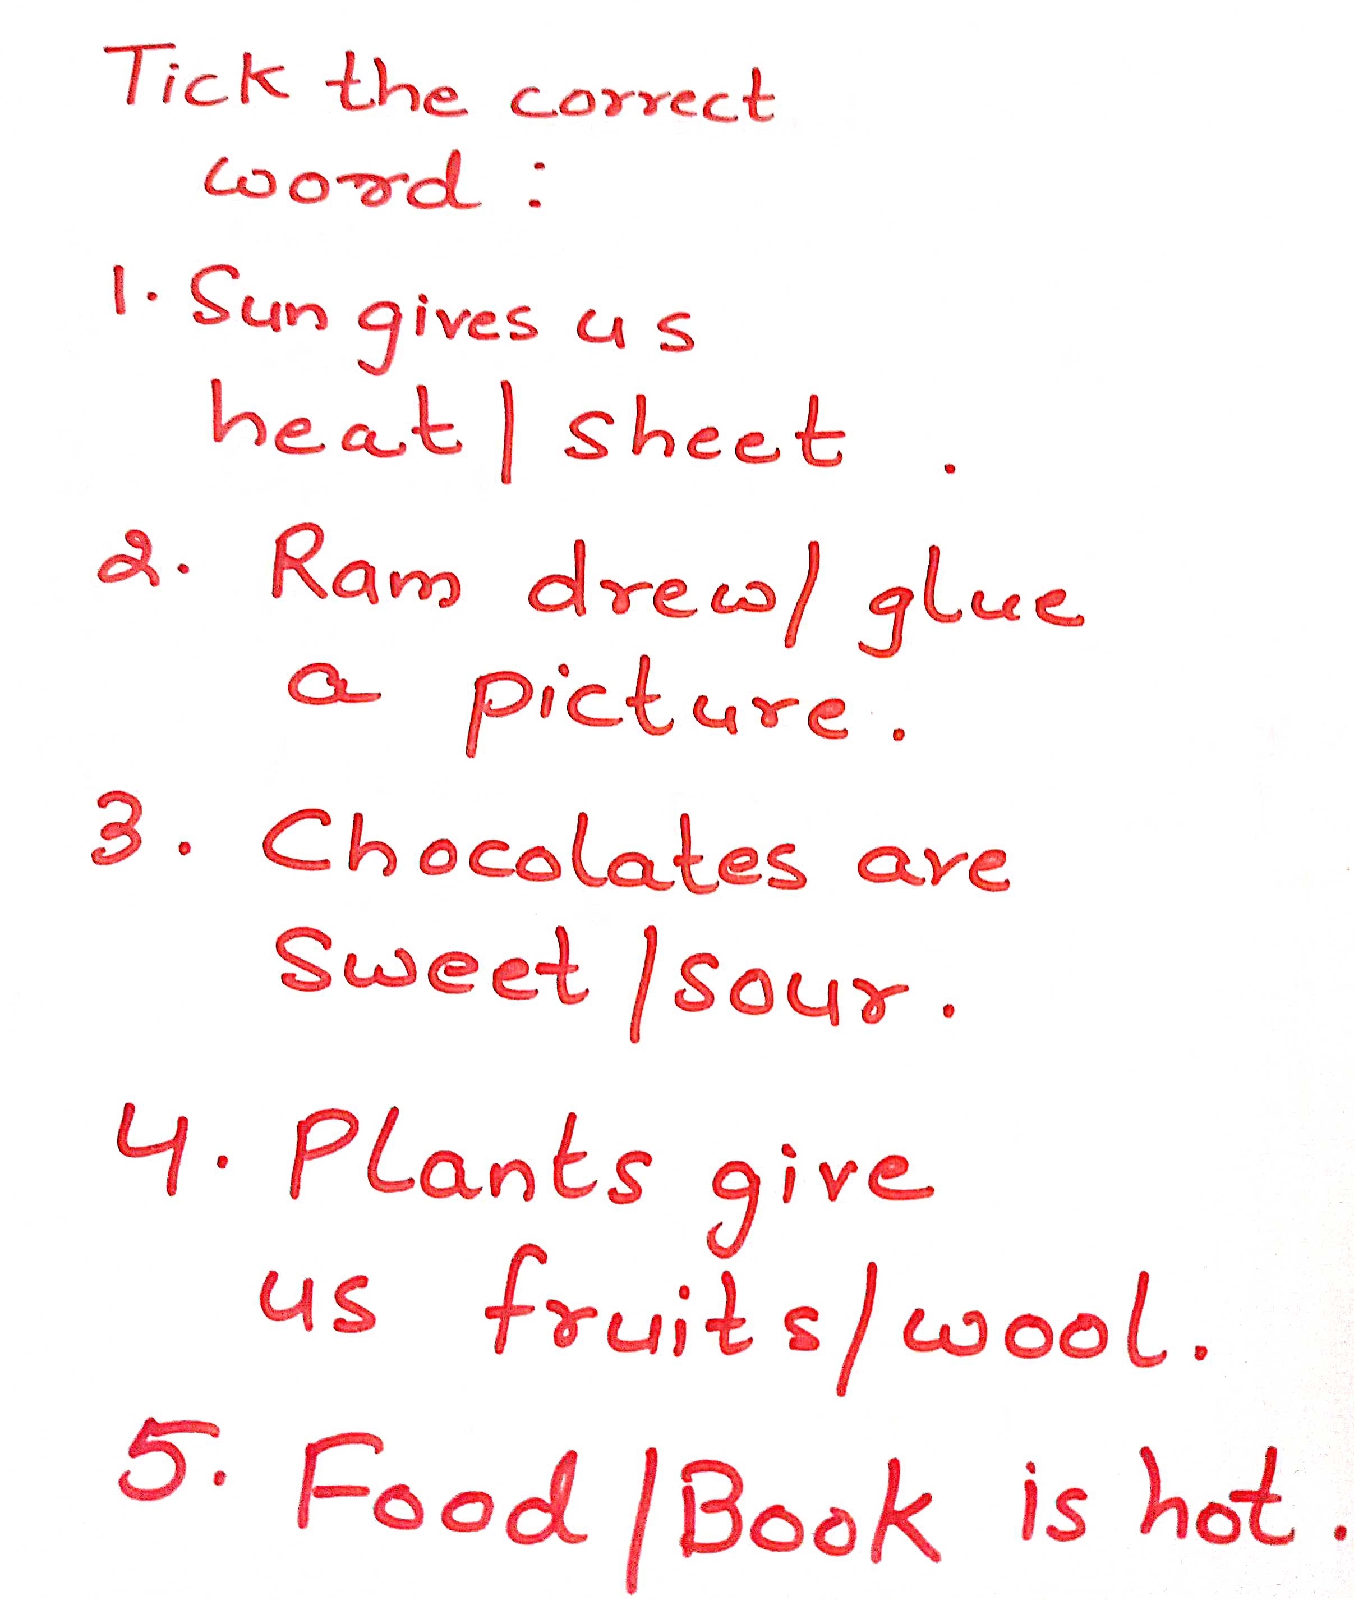 Tick the correct
word :
1. Sun gives us
heat | sheet .
2. Ram drew/ glue
a picture.
3. Chocolates are
Sweet /sour.
4. Plants give
us fruits/wool.
5. Food /Book is hot.